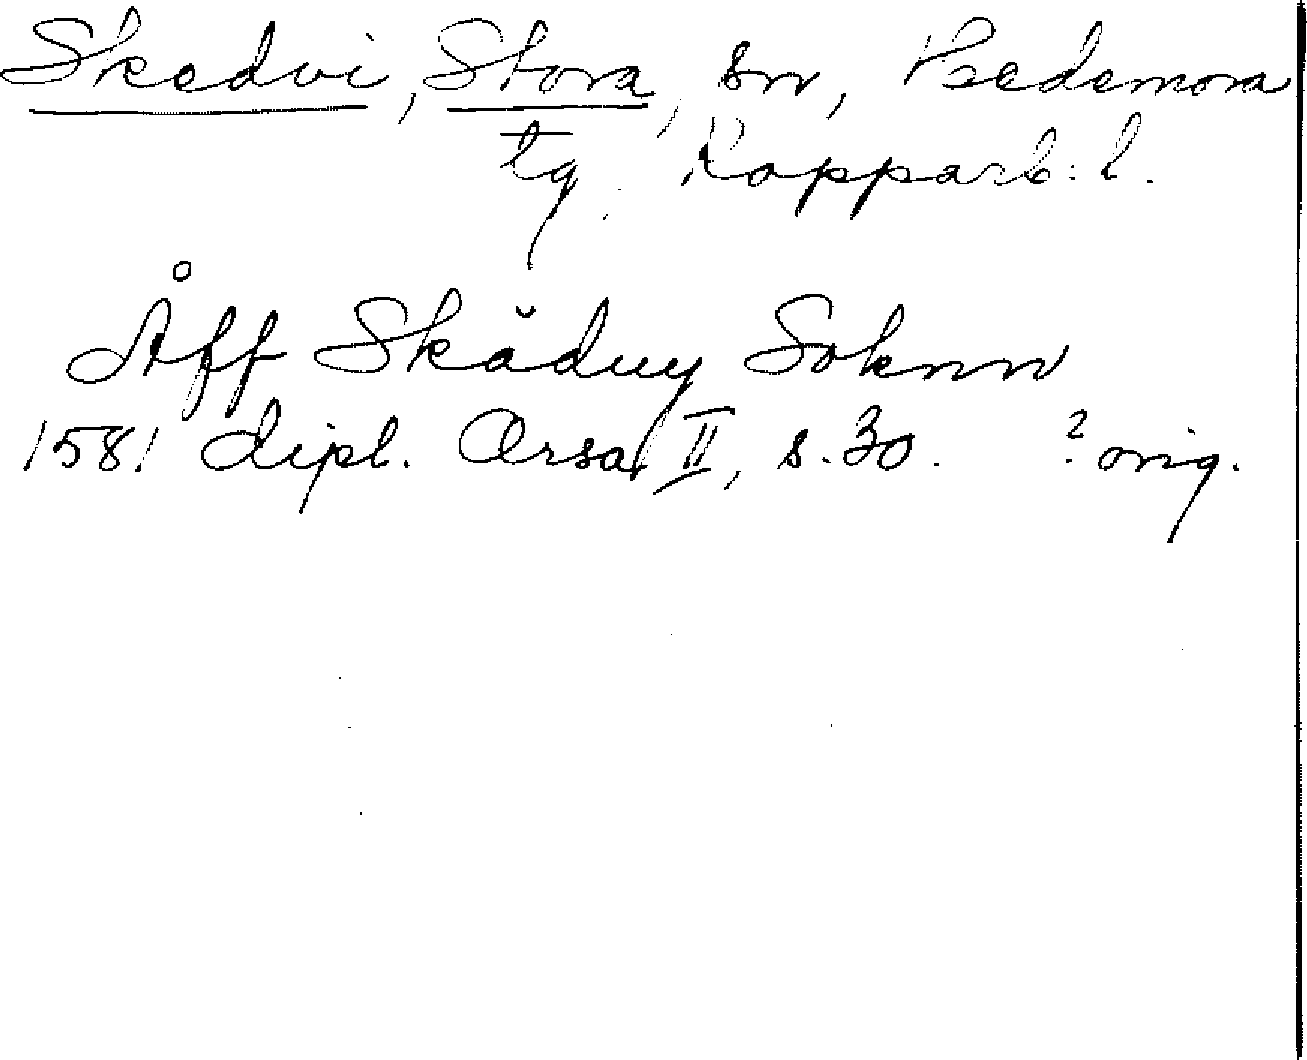 Skedvi, Stora, sn, Hedemora
tg. Kopparb:l.
Åff Skăduy Soknn
1581 dipl. Orsa II, s.30. ?orig.